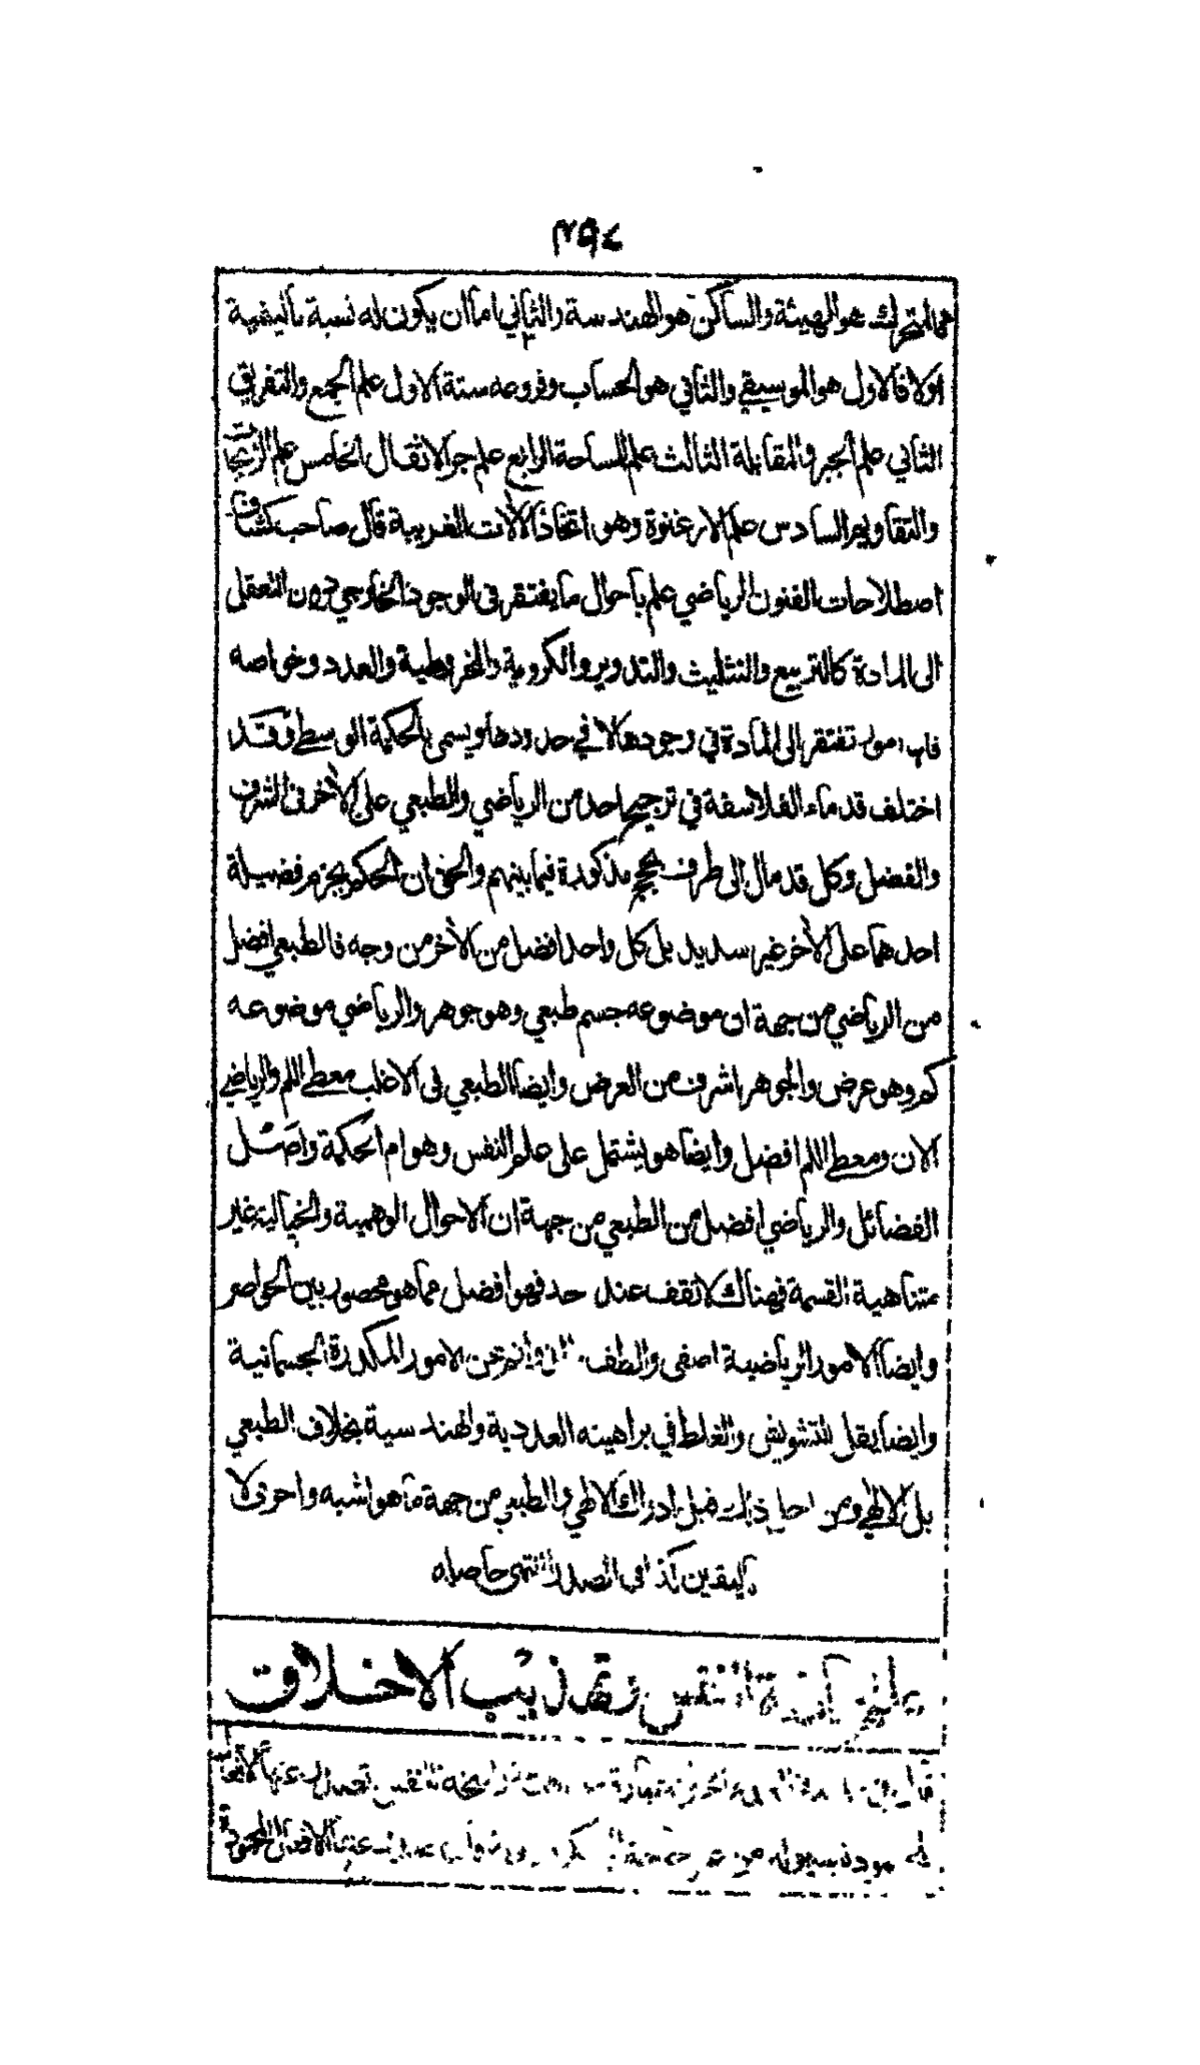 ٢٩٤
فالمتحرك هو الهيئة والساكن هو الهندسة والثاني اما ان يكون له نسبة تاليفية
اولا فالاول هو الموسيقي والثاني هو الحساب وفروعه ستة الاول علم الجمع والتفريق
الثاني علم الجبر والمقابلة الثالث علم المساحة الرابع علم جر الاثقال الخامس علم الزيجات
والتقاويم السادس علم الارغنوة وهو اتخاذ الالات الغريبة قال صاحب كشاف
اصطلاحات الفنون الرياضي علم باحوال ما يفتقر في الوجود الخارجي دون التعقل
الى المادة كالتربيع والتثليث والتدوير والكروية والمخروطية والعدد وخواصه
فانها امور تفتقر الى المادة في وجودها لا في حدودها ويسمى بالحكمة الوسطى وقد
اختلف قدماء الفلاسفة في ترجيح احد من الرياضي والطبعي على الاخر في الشرف
والفضل وكل قد مال الى طرف بحجج مذكورة فيما بينهم والحق ان الحكم بجزم فضيلة
احدهما على الاخر غير سديد بل كل واحد افضل من الاخر من وجه فالطبعي افضل
من الرياضي من جهة ان موضوعه جسم طبعي وهو جوهر والرياضي موضوعه
كم وهو عرض والجوهر اشرف من العرض وايضا الطبعي في الاغلب معطي اللم والرياضي
الان ومعطي اللم افضل وايضا هو يشتمل على علم النفس وهو ام الحكمة واصل
الفضائل والرياضي افضل من الطبعي من جهة ان الاحوال الوهمية والخيالية غير
متناهية القسمة فهناك لا تقف عند حد فهو افضل مما هو محصور بين الحواصر
وايضا الامور الرياضية اصفى والطف عن الامور المكدرة الجسمانية
وايضا يقل التشويش والغلط في براهينه العددية والهندسية بخلاف الطبعي
بل الالهي ومن ذلك قيل ادراك الالهي والطبعي من جهة ما هو اشبه واحرى لا
باليقين كذا في الصدرا انتهى حاصله
رياضة النفس وتهذيب الاخلاق
قال في عبارة عن النفس تصدر عنها الافعال
بسهولة من غير حاجة الى فكر عنها الافعال المحمودة